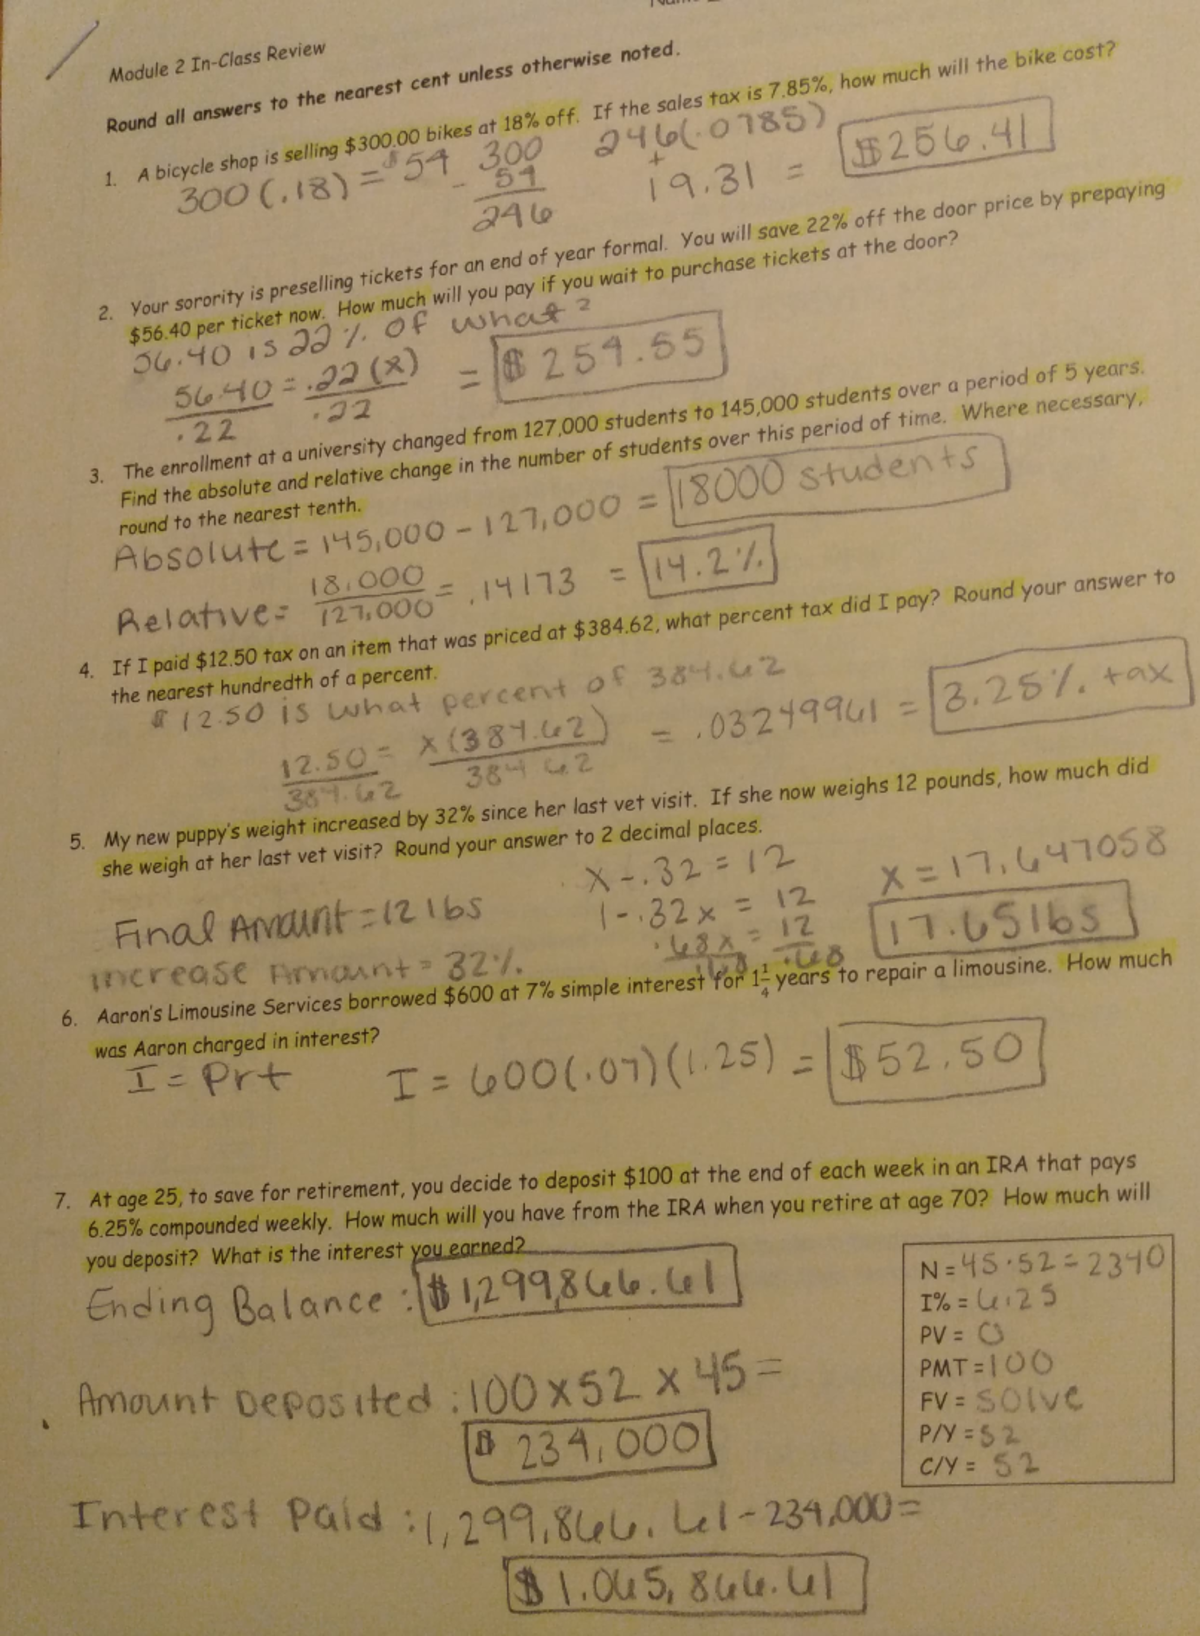 Module 2 In-Class Review
Round all answers to the nearest cent unless otherwise noted.
1. A bicycle shop is selling $300.00 bikes at 18% off. If the sales tax is 7.85%, how much will the bike cost?
300(.18) = $54
300
- 54
246
246(.0785)
+
19.31 = $256.41
2. Your sorority is preselling tickets for an end of year formal. You will save 22% off the door price by prepaying
$56.40 per ticket now. How much will you pay if you wait to purchase tickets at the door?
56.40 is 22% of what?
56.40 = .22(x) = $259.55
.22 .22
3. The enrollment at a university changed from 127,000 students to 145,000 students over a period of 5 years.
Find the absolute and relative change in the number of students over this period of time. Where necessary,
round to the nearest tenth.
Absolute = 145,000 - 127,000 = 18000 students
Relative = 18,000 = .14173 = 14.2%
127,000
4. If I paid $12.50 tax on an item that was priced at $384.62, what percent tax did I pay? Round your answer to
the nearest hundredth of a percent.
$12.50 is what percent of 384.62
12.50 = x(384.62) = .03249961 = 3.25% tax
384.62 384.62
5. My new puppy's weight increased by 32% since her last vet visit. If she now weighs 12 pounds, how much did
she weigh at her last vet visit? Round your answer to 2 decimal places.
Final Amount = 12 lbs
increase Amount = 32%
x-.32 = 12
1-.32x = 12
.68x = 12
.68 .68
x = 17.647058
17.65 lbs
6. Aaron's Limousine Services borrowed $600 at 7% simple interest for 1 1/4 years to repair a limousine. How much
was Aaron charged in interest?
I = Prt I = 600(.07)(1.25) = $52.50
7. At age 25, to save for retirement, you decide to deposit $100 at the end of each week in an IRA that pays
6.25% compounded weekly. How much will you have from the IRA when you retire at age 70? How much will
you deposit? What is the interest you earned?
Ending Balance: $1,299,866.61
Amount Deposited: 100 x 52 x 45 =
$234,000
Interest Paid: 1,299,866.61 - 234,000 =
$1,065,866.61
N = 45·52 = 2340
I% = 6.25
PV = 0
PMT = 100
FV = Solve
P/Y = 52
C/Y = 52